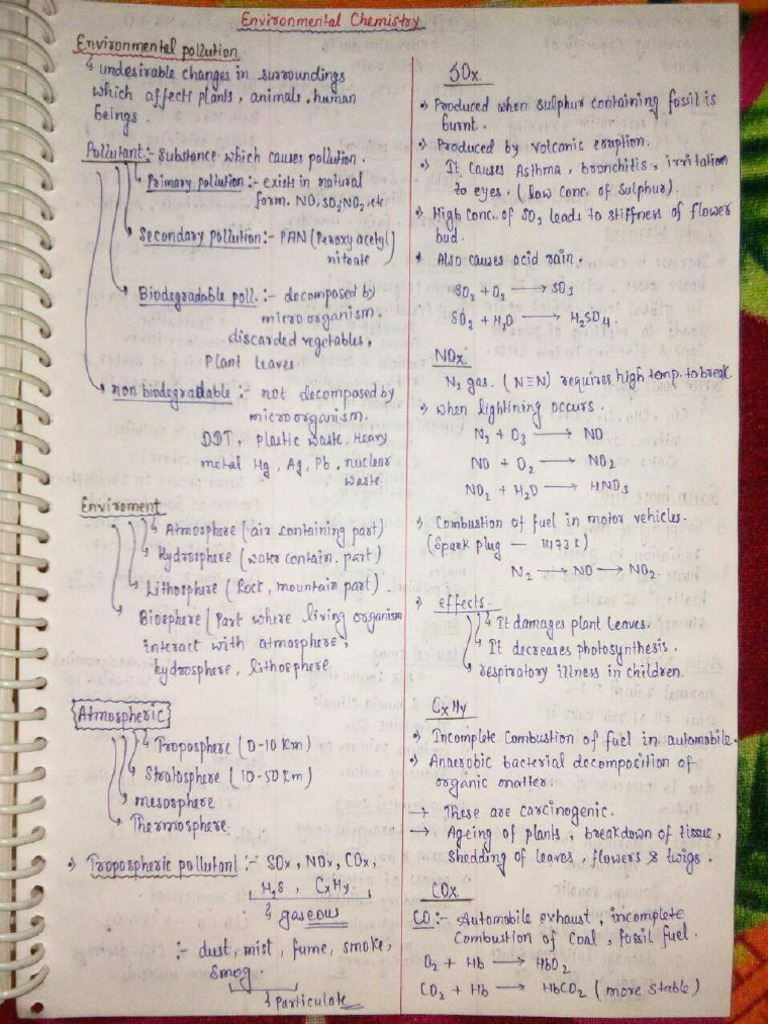 Environmental Chemistry
Environmental pollution
↳ undesirable changes in surroundings
which affects plants, animals, human
beings.
Pollutant:- Substance which causes pollution.
Primary pollution :- exists in natural
form. NO, SO2 NO2, etc
Secondary pollution:- PAN (Peroxy acetyl)
nitrate
Biodegradable poll. :- decomposed by
micro organism.
discarded vegetables,
Plant leaves
non biodegradable :- not decomposed by
microorganism.
DDT, plastic waste, Heavy
metal Hg, Ag, Pb, nuclear
waste
Enviroment
Atmosphere (air containing part)
Hydrosphere (water contain. part)
Lithosphere (Rock, mountain part).
Biosphere (Part where living organism
interact with atmosphere,
hydrosphere, lithosphere
Atmospheric
Troposphere (0-10 Km)
Stratosphere (10-50 Km)
mesosphere
Thermosphere.
Tropospheric pollutant :- SOx, NOx, COx,
H2S, CxHy.
↳ gaseous
:- dust, mist, fume, smoke,
Smog.
↳ Particulate
SOx.
→ Produced when sulphur containing fossil is
burnt.
→ Produced by volcanic eruption.
→ It causes Asthma, bronchitis, irritation
to eyes. (low conc. of Sulphur).
→ High conc. of SO2 leads to stiffness of flower
bud.
→ Also causes acid rain.
SO2 + O2 ⟶ SO3
SO2 + H2O ⟶ H2SO4.
NOx.
N2 gas. (N≡N) requires high temp. to break
→ when lightining occurs.
N2 + O3 ⟶ NO
NO + O2 ⟶ NO2
NO2 + H2O ⟶ HNO3
→ Combustion of fuel in motor vehicles.
(Spark plug — 1473 k)
N2 ⟶ NO ⟶ NO2.
→ effects.
↳ It damages plant leaves.
↳ It decreases photosynthesis.
↳ respiratory illness in children.
CxHy
→ Incomplete Combustion of fuel in automobile.
→ Anaerobic bacterial decomposition of
organic matter.
→ These are carcinogenic.
→ Ageing of plants, breakdown of tissue,
shedding of leaves, flowers & twigs.
COx.
CO:- Automobile exhaust, incomplete
Combustion of coal, fossil fuel.
O2 + Hb ⟶ HbO2
CO2 + Hb ⟶ HbCO2 (more stable)